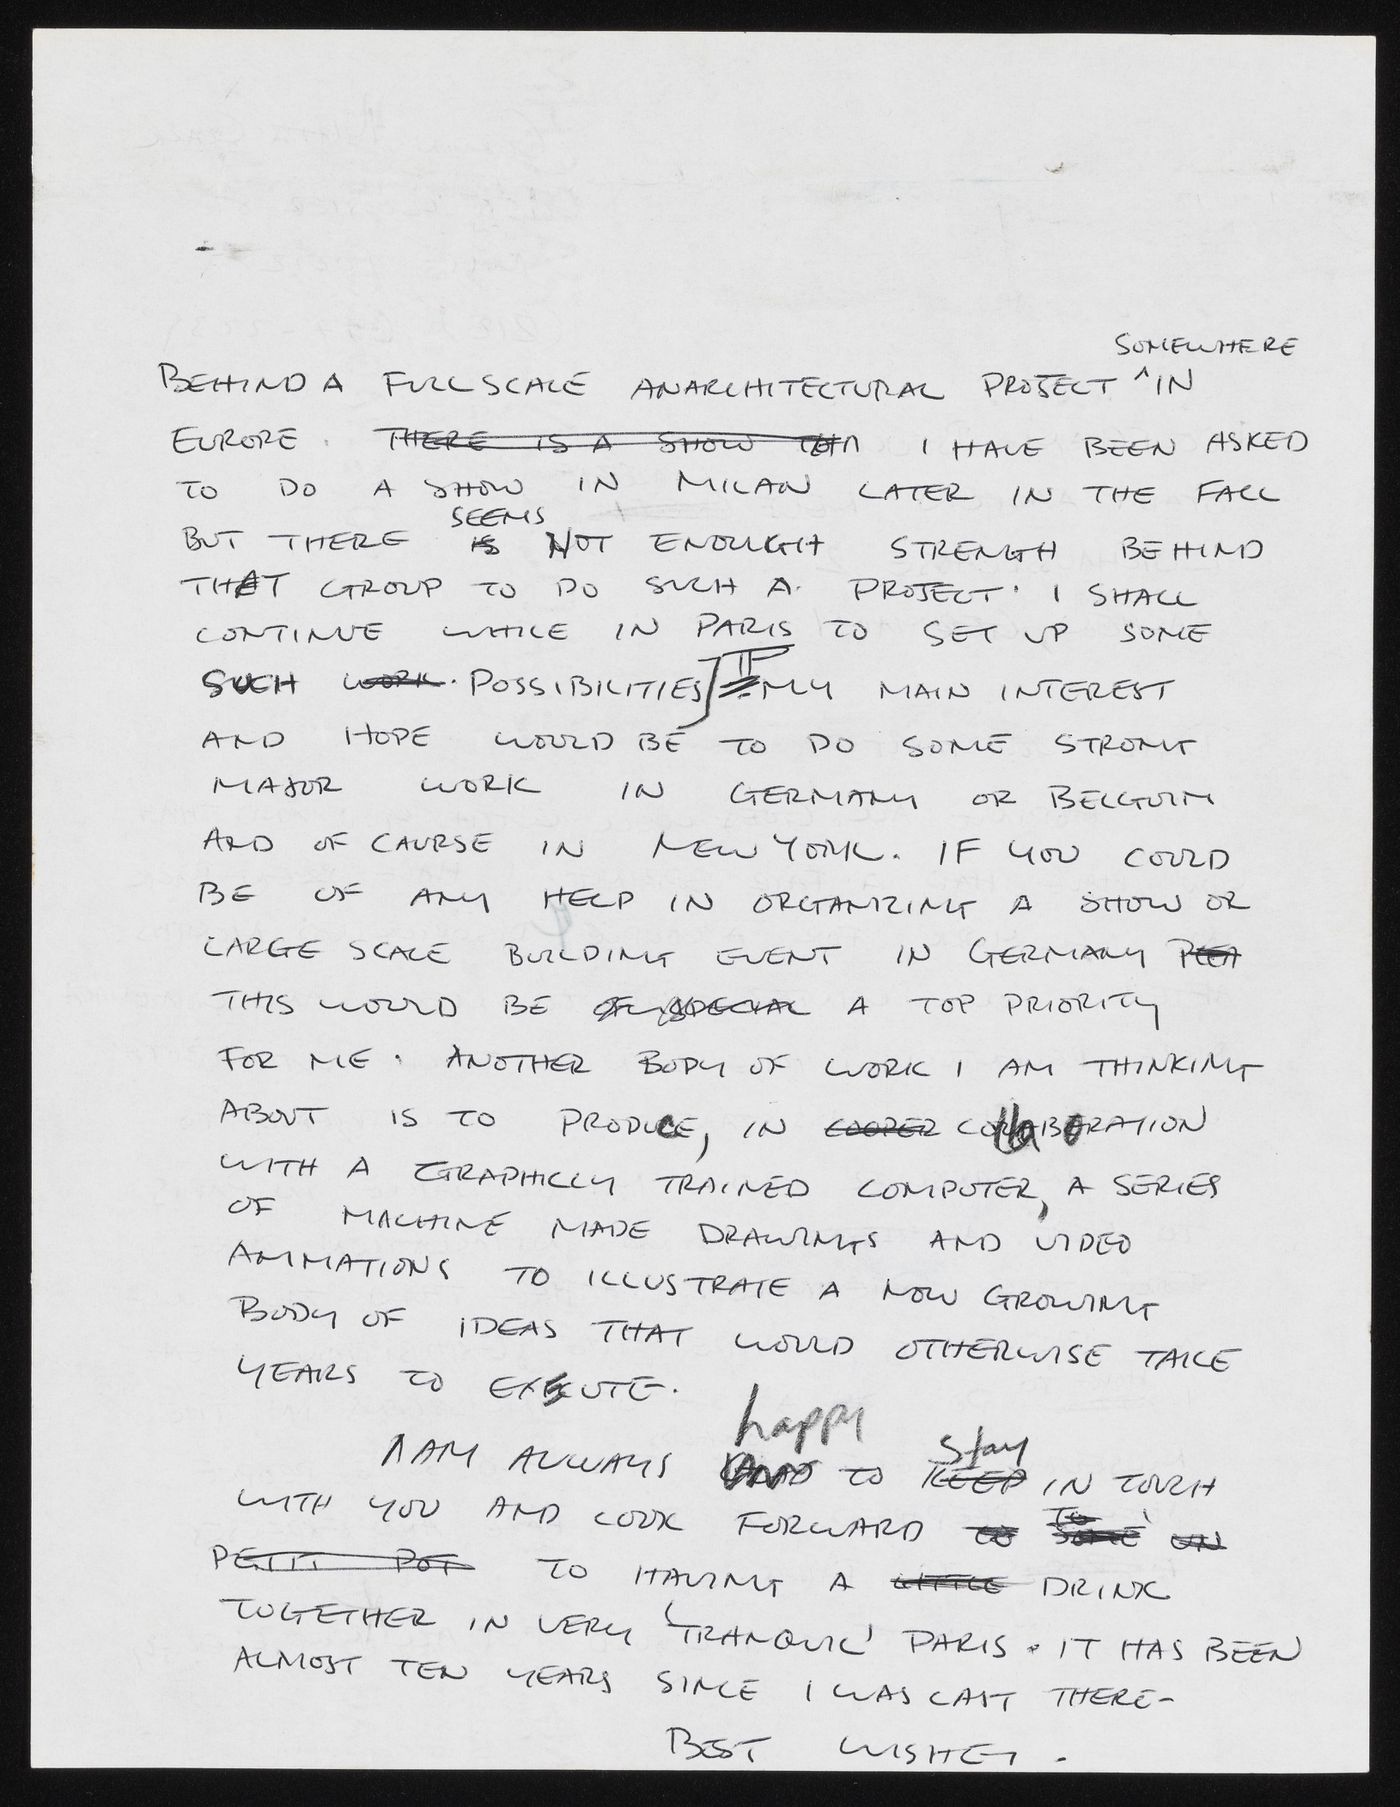 SOMEWHERE
BEHIND A FULL SCALE ANARCHITECTURAL PROJECT ^ IN
EUROPE. THERE IS A SHOW I HAVE BEEN ASKED
TO DO A SHOW IN MILAN LATER IN THE FALL
SEEMS
BUT THERE IS NOT ENOUGH STRENGTH BEHIND
THAT GROUP TO DO SUCH A PROJECT. I SHALL
CONTINUE WHILE IN PARIS TO SET UP SOME
SUCH WORK. POSSIBILITIES MY MAIN INTEREST
AND HOPE WOULD BE TO DO SOME STRONG
MAJOR WORK IN GERMANY OR BELGUIM
AND OF CAURSE IN NEW YORK. IF YOU COULD
BE OF ANY HELP IN ORGANIZING A SHOW OR
LARGE SCALE BUILDING EVENT IN GERMANY
THIS WOULD BE SPECIAL A TOP PRIORITY
FOR ME. ANOTHER BODY OF WORK I AM THINKING
ABOUT IS TO PRODUCE, IN COOPER COllaBORATION
WITH A GRAPHICLY TRAINED COMPUTER, A SERIES
OF MACHINE MADE DRAWINGS AND VIDEO
ANIMATIONS TO ILLUSTRATE A NOW GROWING
BODY OF IDEAS THAT WOULD OTHERWISE TAKE
YEARS TO EXECUTE.
happy stay
I AM ALWAYS TO KEEP IN TOUCH
TO
WITH YOU AND LOOK FORWARD TO SOME UN
PETIT POT TO HAVING A LITTLE DRINK
TOGETHER IN VERY 'TRANQUIL' PARIS. IT HAS BEEN
ALMOST TEN YEARS SINCE I WAS LAST THERE-
BEST WISHES.